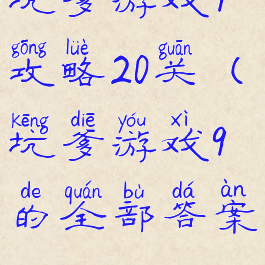 坑爹游戏1
gōng lüè guān
攻略20关（
kēng diē yóu xì
坑爹游戏9
de quán bù dá àn
的全部答案